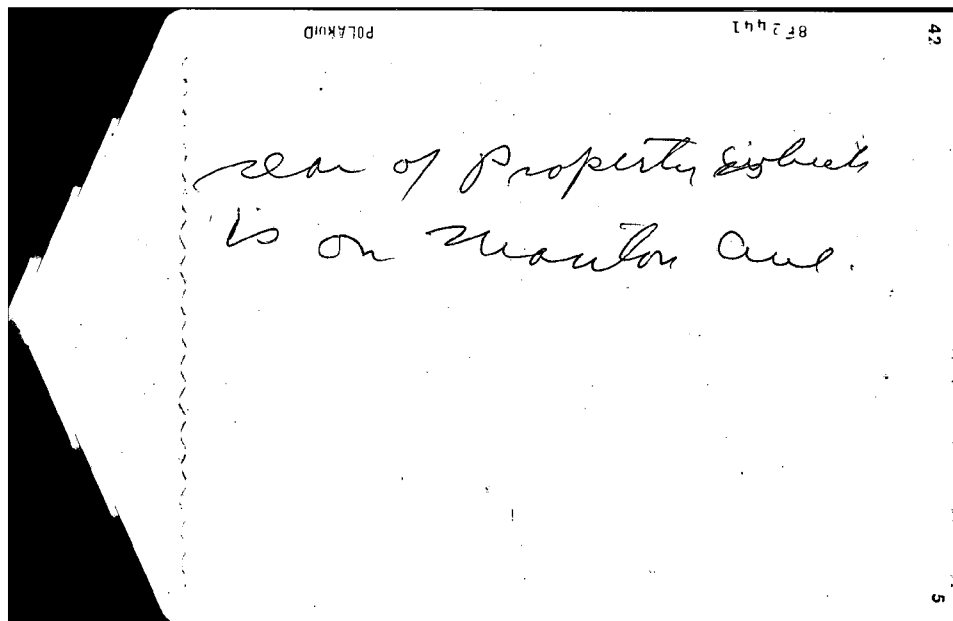 POLAROID
8F2441
42
rear of Property which
is on Manton Ave.
5